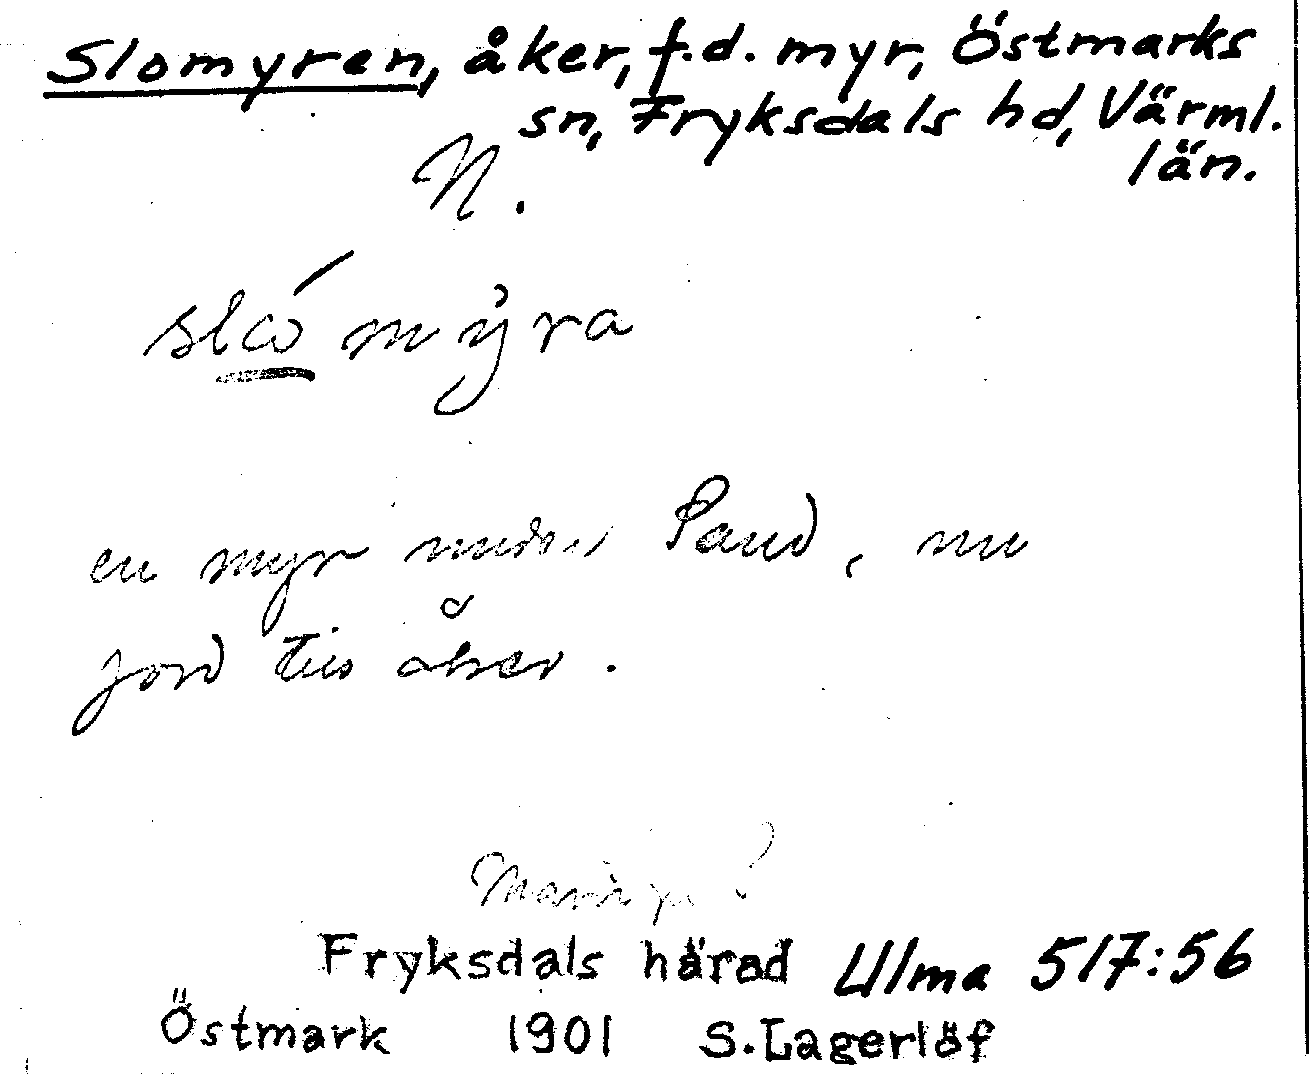 Slomyren, åker, f.d. myr, Östmarks
sn, Fryksdals hd, Värml.
län.
N.
slómýra
en myr under Sand, nu
jord till åker.
?
Fryksdals härad Ulma 517:56
Östmark 1901 S. Lagerlöf